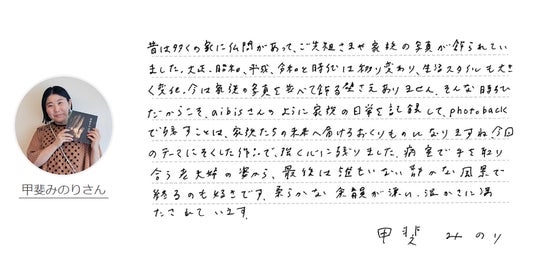 昔は多くの家に仏間があって、ご先祖さまや家族の写真が飾られてい
ました。大正、昭和、平成、令和と時代は移り変わり、生活スタイルも大き
く変化。今は家族の写真を並べて飾る壁さえありません。そんな時代
だからこそ、aibisさんのように家族の日常を記録して、photoback
で残すことは、家族たちの未来へ届けるおくりものになりますね。今回
のテーマにそくした作品で、強く心に残りました。病室で手を取り
合う老夫婦の姿から、最後は誰もいない静かな風景で
終るのも好きです。柔らかな余韻が漂い、温かさに満
たされています。
甲斐みのりさん
甲斐 みのり